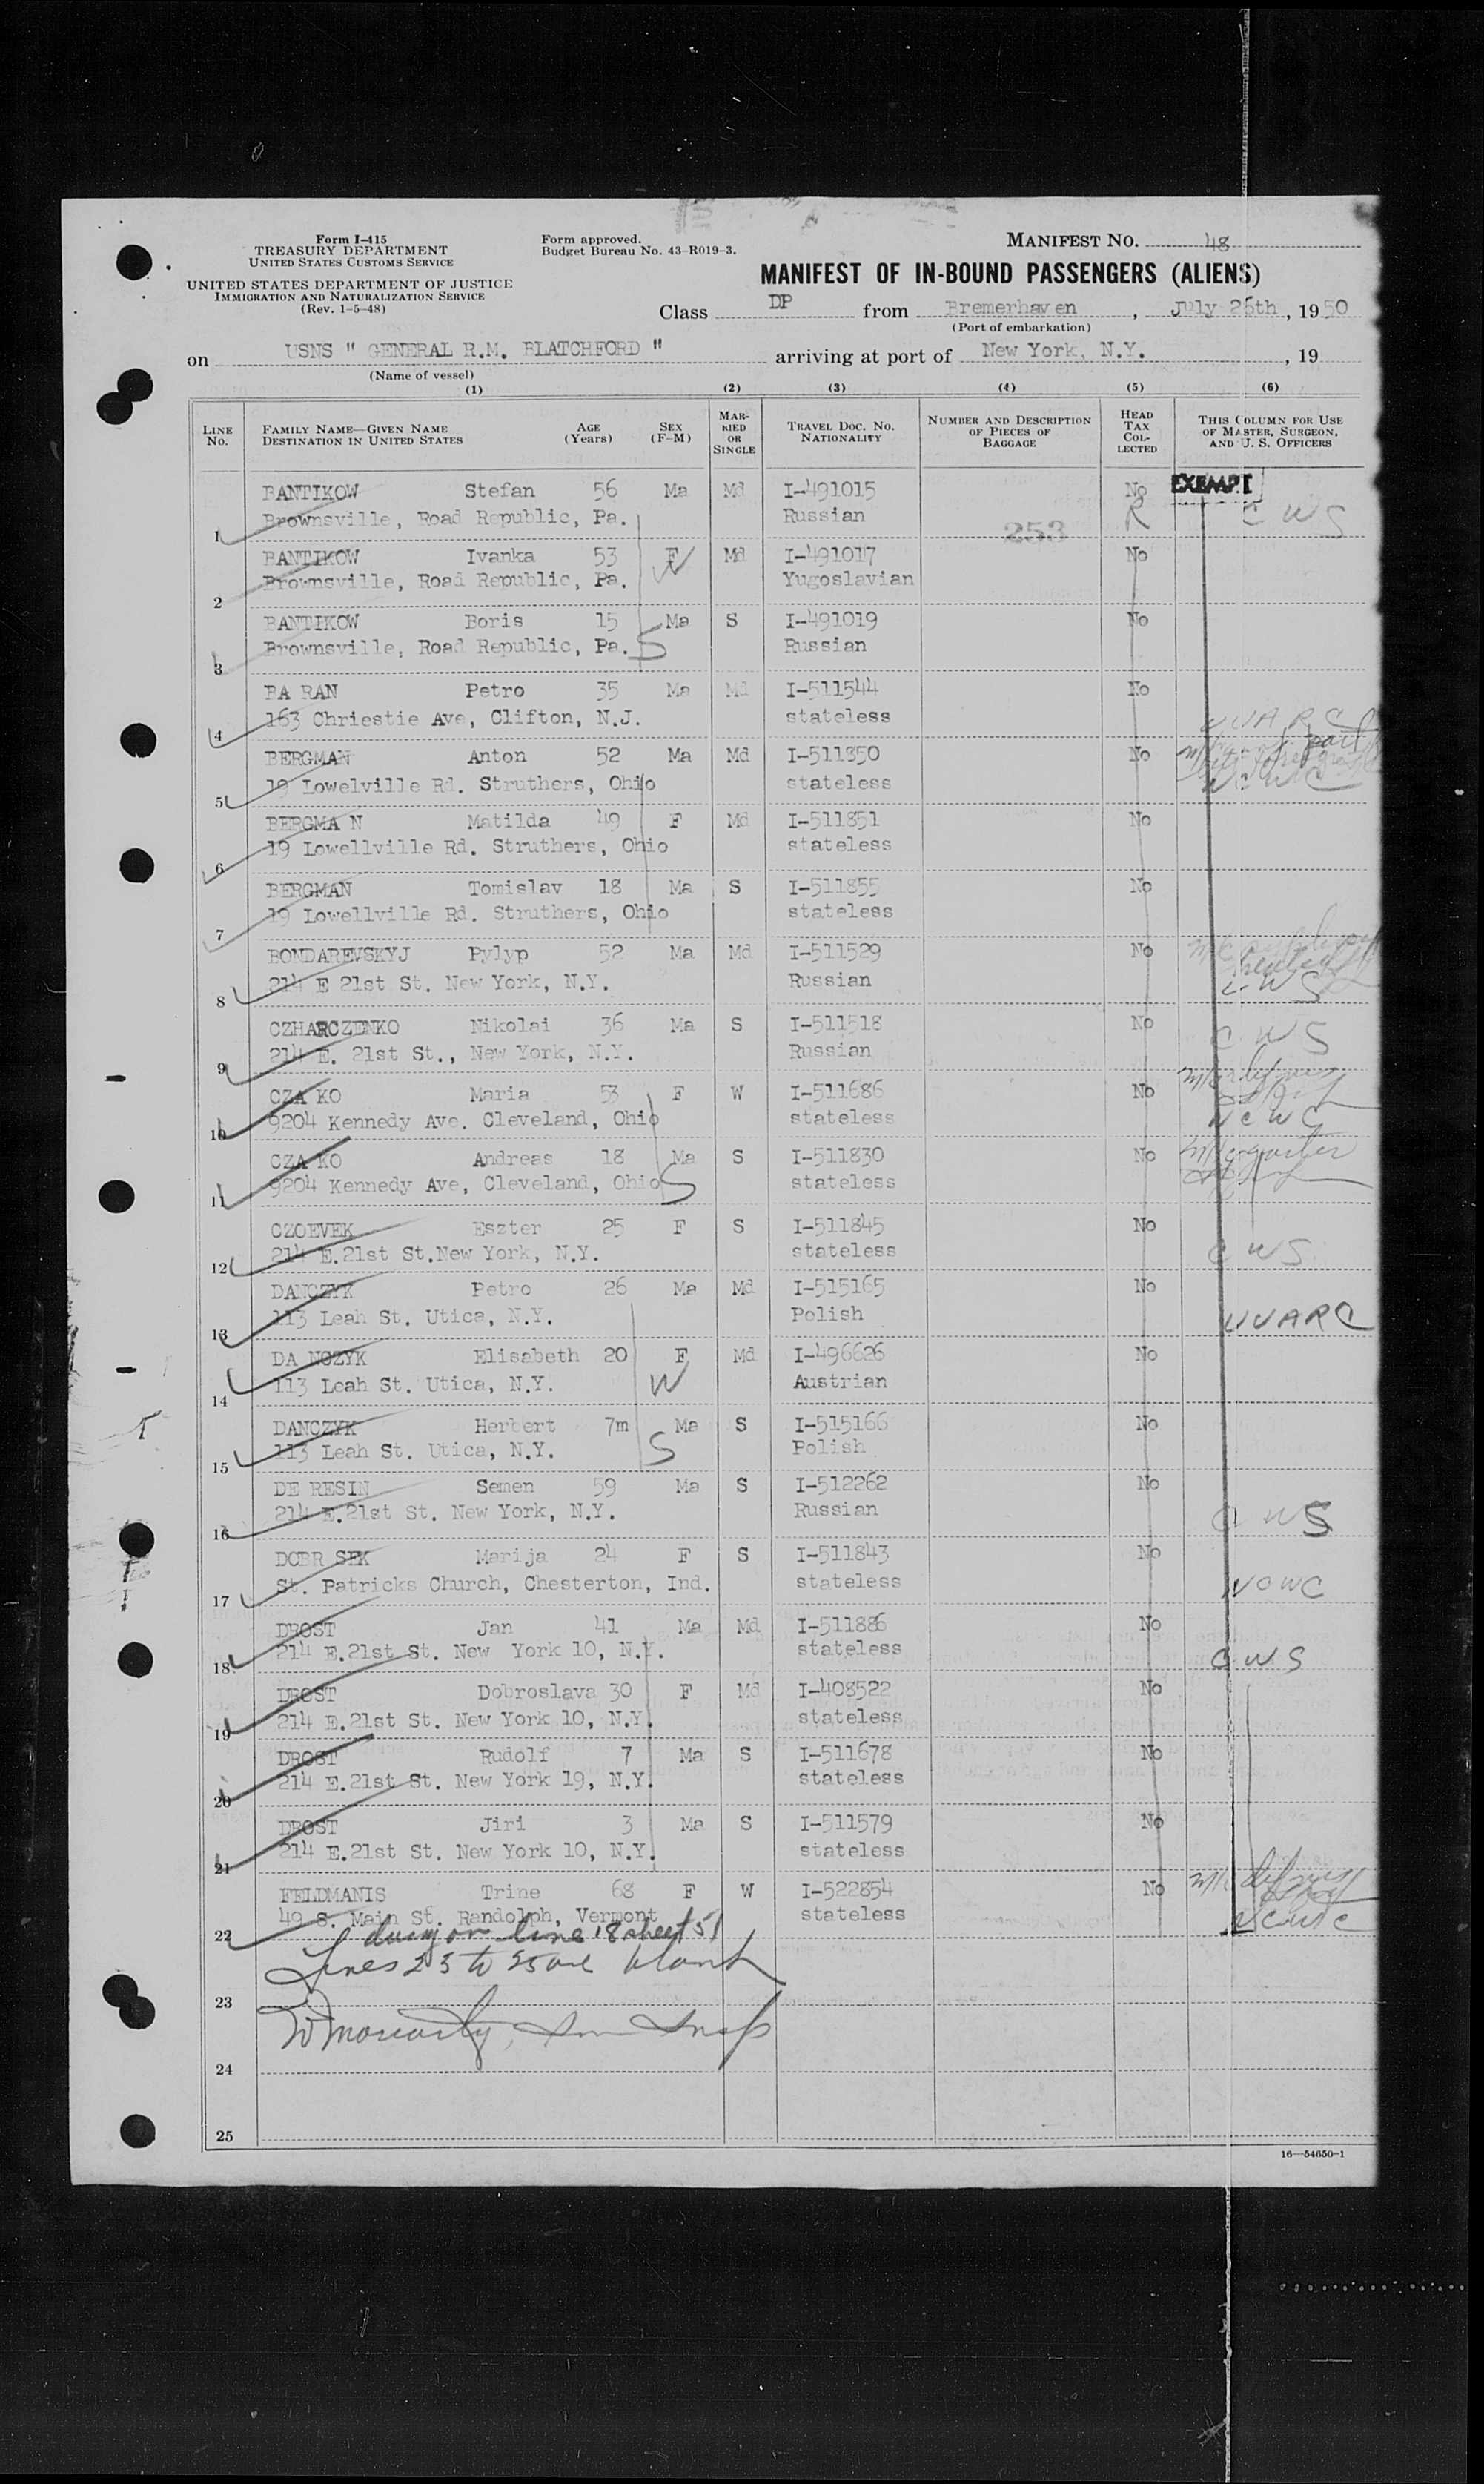 Form I-415
TREASURY DEPARTMENT
UNITED STATES CUSTOMS SERVICE
UNITED STATES DEPARTMENT OF JUSTICE
IMMIGRATION AND NATURALIZATION SERVICE
(Rev. 1-5-48)
Form approved.
Budget Bureau No. 43-R019-3.
MANIFEST NO. 48
MANIFEST OF IN-BOUND PASSENGERS (ALIENS)
Class DP from Bremerhaven, July 26th, 1950
(Port of embarkation)
on USNS " GENERAL R.M. BLATCHFORD " arriving at port of New York, N.Y., 19
(Name of vessel)
(1) (2) (3) (4) (5) (6)
LINE NO. FAMILY NAME—GIVEN NAME DESTINATION IN UNITED STATES AGE (Years) SEX (F-M) MARRIED OR SINGLE TRAVEL DOC. NO. NATIONALITY NUMBER AND DESCRIPTION OF PIECES OF BAGGAGE HEAD TAX COLLECTED THIS COLUMN FOR USE OF MASTER, SURGEON, AND U. S. OFFICERS
BANTIKOW Stefan 56 Ma Md I-491015 No EXEMPT
1 Brownsville, Road Republic, Pa. Russian 253 R C W S
BANTIKOW Ivanka 53 F Md I-491017 No
2 Brownsville, Road Republic, Pa. W Yugoslavian
BANTIKOW Boris 15 Ma S I-491019 No
3 Brownsville, Road Republic, Pa. S Russian
BA RAN Petro 35 Ma Md I-511544 No
4 163 Chriestie Ave, Clifton, N.J. stateless UUARC
BERGMAN Anton 52 Ma Md I-511850 No
5 19 Lowelville Rd. Struthers, Ohio stateless NCWC
BERGMA N Matilda 49 F Md I-511851 No
6 19 Lowellville Rd. Struthers, Ohio stateless
BERGMAN Tomislav 18 Ma S I-511855 No
7 19 Lowellville Rd. Struthers, Ohio stateless
BONDAREVSKYJ Pylyp 52 Ma Md I-511529 No
8 214 E 21st St. New York, N.Y. Russian C W S
CZHARCZENKO Nikolai 36 Ma S I-511518 No
9 214 E. 21st St., New York, N.Y. Russian C W S
CZA KO Maria 53 F W I-511686 No
10 9204 Kennedy Ave. Cleveland, Ohio stateless NCWC
CZA KO Andreas 18 Ma S I-511830 No
11 9204 Kennedy Ave, Cleveland, Ohio S stateless
CZOEVEK Eszter 25 F S I-511845 No
12 214 E.21st St.New York, N.Y. stateless C W S
DANCZYK Petro 26 Ma Md I-515165 No
13 113 Leah St. Utica, N.Y. Polish UUARC
DA NCZYK Elisabeth 20 F Md I-496626 No
14 113 Leah St. Utica, N.Y. W Austrian
DANCZYK Herbert 7m Ma S I-515166 No
15 113 Leah St. Utica, N.Y. S Polish
DE RESIN Semen 59 Ma S I-512262 No
16 214 E.21st St. New York, N.Y. Russian C W S
DOBR SEK Marija 24 F S I-511843 No
17 St. Patricks Church, Chesterton, Ind. stateless NCWC
DROST Jan 41 Ma Md I-511886 No
18 214 E.21st St. New York 10, N.Y. stateless C W S
DROST Dobroslava 30 F Md I-408522 No
19 214 E.21st St. New York 10, N.Y. stateless
DROST Rudolf 7 Ma S I-511678 No
20 214 E.21st St. New York 19, N.Y. stateless
DROST Jiri 3 Ma S I-511579 No
21 214 E.21st St. New York 10, N.Y. stateless
FELDMANIS Trine 68 F W I-522854 No
22 49 S. Main St. Randolph, Vermont stateless NCWC
on line 18 sheet 51
Lines 23 to 25 are blank
23
W Moriarty, Imm Insp
24
25
16—54650-1